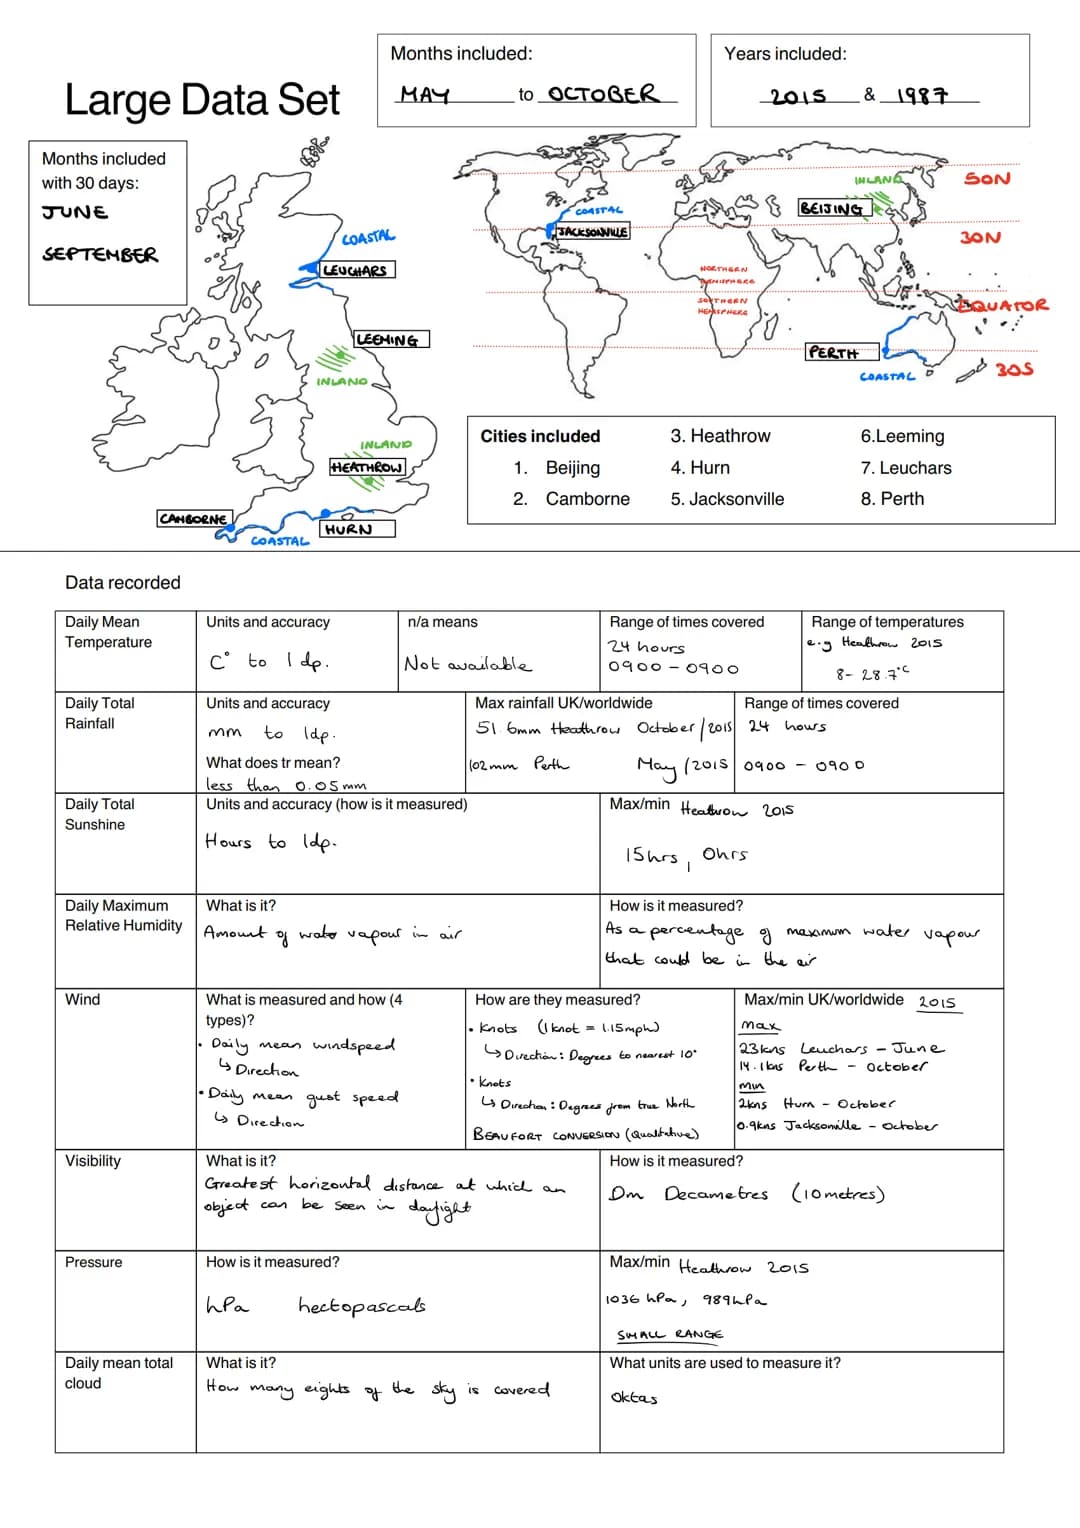 Large Data Set
Months included:
MAY to OCTOBER
Years included:
2015 & 1987
Months included
with 30 days:
JUNE
SEPTEMBER
COASTAL
LEUCHARS
LEEMING
INLAND
INLAND
HEATHROW
CAMBORNE
HURN
COASTAL
INLAND
BEIJING
COASTAL
JACKSONVILLE
NORTHERN
HEMISPHERE
SOUTHERN
HEMISPHERE
PERTH
COASTAL
50N
30N
EQUATOR
30S
Cities included
1. Beijing
2. Camborne
3. Heathrow
4. Hurn
5. Jacksonville
6.Leeming
7. Leuchars
8. Perth
Data recorded
Daily Mean
Temperature
Units and accuracy
C° to 1 dp.
n/a means
Not available
Range of times covered
24 hours
0900 - 0900
Range of temperatures
e.g Heathrow 2015
8- 28.7°C
Daily Total
Rainfall
Units and accuracy
mm to 1dp.
What does tr mean?
less than 0.05mm
Max rainfall UK/worldwide
51.6mm Heathrow October/2015
102mm Perth May/2015
Range of times covered
24 hours
0900 - 0900
Daily Total
Sunshine
Units and accuracy (how is it measured)
Hours to 1dp.
Max/min Heathrow 2015
15hrs, 0hrs
Daily Maximum
Relative Humidity
What is it?
Amount of water vapour in air
How is it measured?
As a percentage of maximum water vapour
that could be in the air
Wind
What is measured and how (4
types)?
• Daily mean windspeed
↳ Direction
• Daily mean gust speed
↳ Direction
How are they measured?
• Knots (1 knot = 1.15mph)
↳ Direction: Degrees to nearest 10°
• Knots
↳ Direction: Degrees from true North
BEAUFORT CONVERSION (Qualitative)
Max/min UK/worldwide 2015
max
23kns Leuchars - June
14.1kns Perth - October
min
2kns Hurn - October
0.9kns Jacksonville - October
Visibility
What is it?
Greatest horizontal distance at which an
object can be seen in daylight
How is it measured?
Dm Decametres (10 metres)
Pressure
How is it measured?
hPa hectopascals
Max/min Heathrow 2015
1036 hPa, 989hPa
SMALL RANGE
Daily mean total
cloud
What is it?
How many eights of the sky is covered
What units are used to measure it?
Oktas